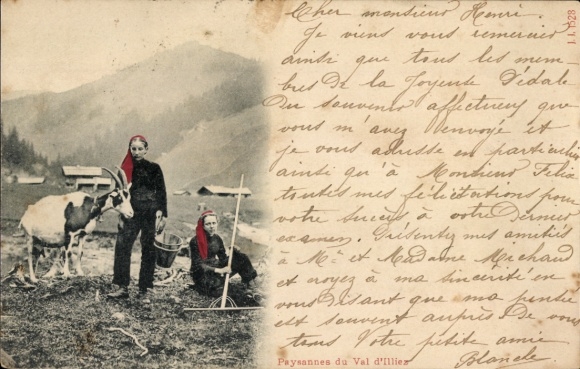 Cher monsieur Henri.
Je viens vous remercier
ainsi que tous les mem-
bres de la Joyeuse Pédale
Du souvenir affectueux que
vous m'avez envoyé et
je vous adresse en particulier
ainsi qu'à Monsieur Félix
toutes mes félicitations pour
votre succès à votre dernier
examen. Présentez mes amitiés
à Mr et Madame Michaud
et croyez à ma sincérité en
vous disant que ma pensée
est souvent auprès de vous
tous Votre petite amie
Blanche.
Paysannes du Val d'Illiez
J. J. 1528